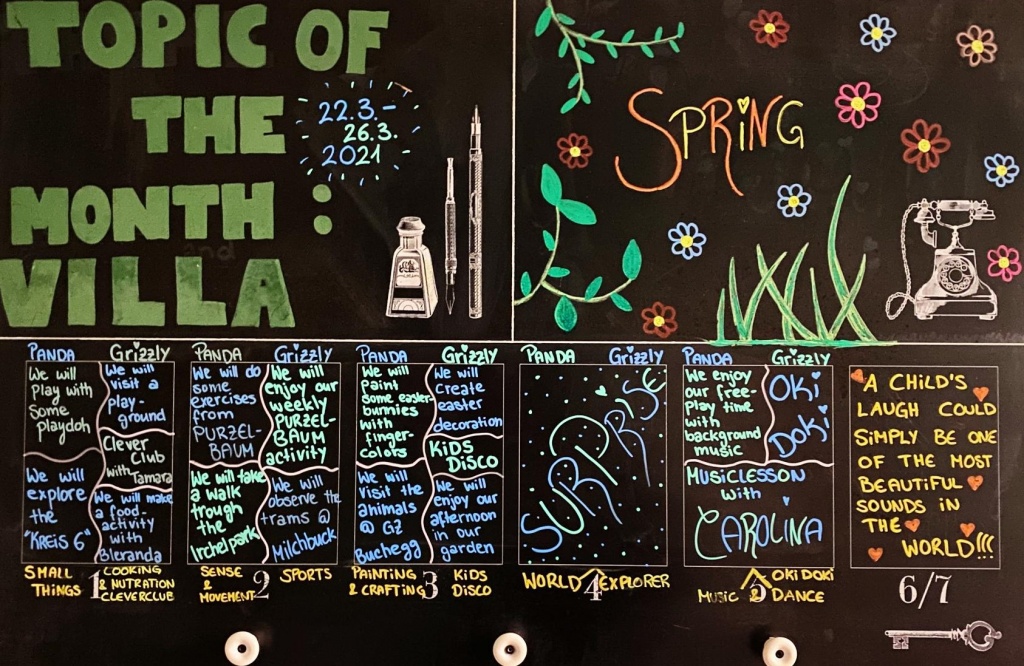 TOPIC OF
THE
MONTH :
VILLA
22.3.-
26.3.
2021
SPRING
PANDA
We will
play with
some
playdoh
We will
explore
the
"KREIS 6"
Grizzly
We will
visit a
play-
ground
Clever
Club
with Tamara
We will make
a food-
activity
with
Bleranda
SMALL
THINGS
1
COOKING
& NUTRATION
CLEVERCLUB
PANDA
We will do
some
exercises
from
PURZEL-
BAUM
We will take
a walk
trough
the
Irchelpark
Grizzly
We will
enjoy our
weekly
PURZEL-
BAUM
activity
We will
observe the
trams @
Milchbuck
SENSE
&
MOVEMENT
2
SPORTS
PANDA
We will
paint
some easter-
bunnies
with
finger-
colors
We will
visit the
animals
@ GZ
Buchegg
Grizzly
We will
create
easter
decoration
KiDS
DISCO
We will
enjoy our
afternoon
in our
garden
PAINTING
& CRAFTING
3
KiDS
DISCO
PANDA
Grizzly
SURPRISE
WORLD
4
EXPLORER
PANDA
We enjoy
our free-
play time
with
background
music
Grizzly
OKi
DOKi
MUSICLESSON
with
CAROLINA
MUSIC &
5
OKiDOKi
DANCE
A CHILD'S
LAUGH COULD
SiMPLY BE ONE
OF THE MOST
BEAUTiFUL
SOUNDS iN
THE
WORLD!!!
6/7